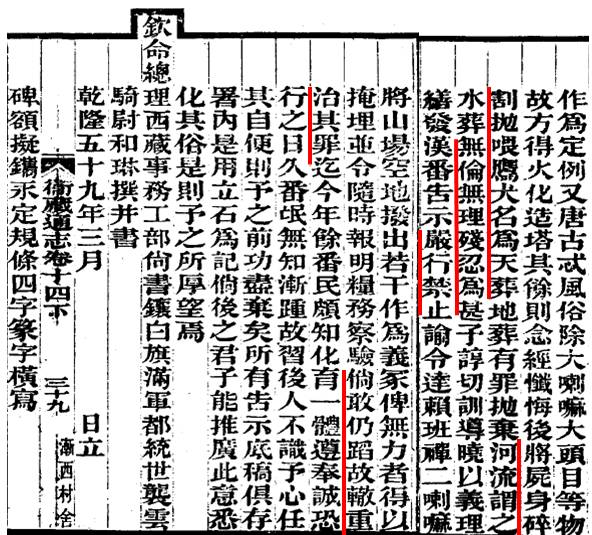 作爲定例又唐古忒風俗除大喇嘛大頭目等物
故方得火化造塔其餘則念經懺悔後將屍身碎
割拋喂鷹犬名爲天葬地葬有罪拋棄河流謂之
水葬無倫無理殘忍爲甚予諄切訓導曉以義理
繕發漢番告示嚴行禁止諭令達賴班禪二喇嘛
將山場空地撥出若干作爲義冢俾無力者得以
掩埋並令隨時報明糧務察驗倘敢仍蹈故轍重
治其罪迄今年餘番民頗知化育一體遵奉誠恐
行之日久番氓無知漸踵故習後人不識予心任
其自便則予之前功盡棄矣所有告示底稿俱存
署內是用立石爲記倘後之君子能推廣此意悉
化其俗是則予之所厚望焉
欽命總理西藏事務工部尚書鑲白旗滿軍都統世襲雲
騎尉和琳撰并書
乾隆五十九年三月 日立
衛藏通志卷十四下 三十九 漸西村舍
碑額擬鐫永定規條四字篆字橫寫